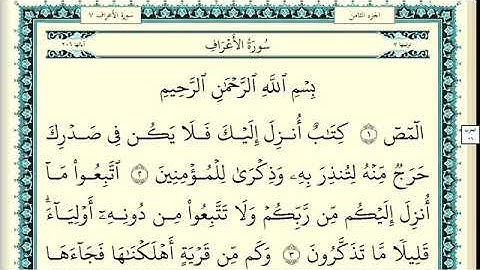 سورة الأعراف ٧
الجزء الثامن
آياتها ٢٠٦
سُورَةُ الأَعْرَافِ
ترتيبها ٧
بِسْمِ ٱللَّهِ ٱلرَّحْمَٰنِ ٱلرَّحِيمِ
الٓمٓصٓ ۝١ كِتَٰبٌ أُنزِلَ إِلَيْكَ فَلَا يَكُن فِى صَدْرِكَ
حَرَجٌ مِّنْهُ لِتُنذِرَ بِهِۦ وَذِكْرَىٰ لِلْمُؤْمِنِينَ ۝٢ ٱتَّبِعُوا۟ مَآ
أُنزِلَ إِلَيْكُم مِّن رَّبِّكُمْ وَلَا تَتَّبِعُوا۟ مِن دُونِهِۦٓ أَوْلِيَآءَ ۗ
قَلِيلًا مَّا تَذَكَّرُونَ ۝٣ وَكَم مِّن قَرْيَةٍ أَهْلَكْنَٰهَا فَجَآءَهَا